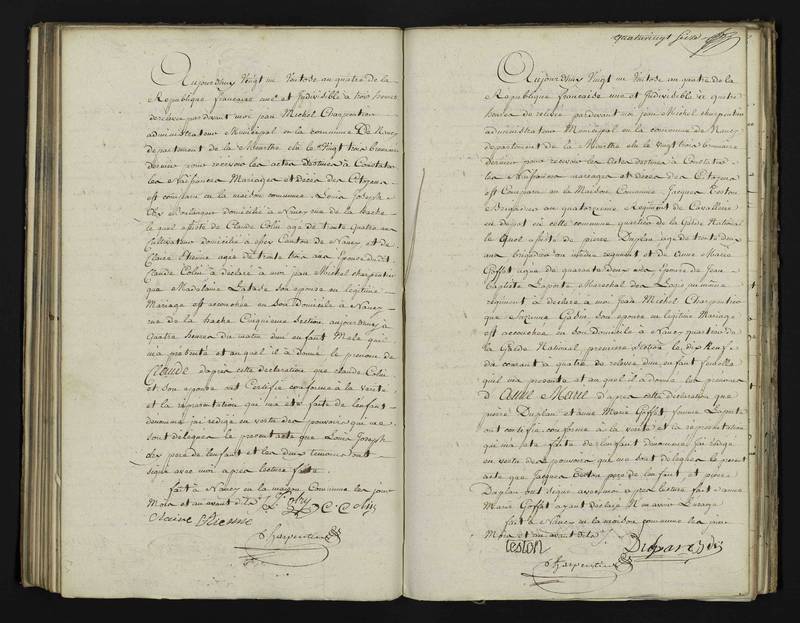 Aujourdhuy Vingt un Ventose an quatre de la
Republique francaise une et Indivisible à trois heures
de relevé par devant moi jean Michel Charpentier
administrateur Municipal en la commune De Nancy
departement de la Meurthe élu le Vingt trois brumaire
dernier pour recevoir les actes destinés à Constater
les Naissances Mariages et décès des Citoyens
est comparu en la maison commune Louis Joseph
domicilié à Nancy rue de la hache
lequel assisté de Claude Colin agé de trente quatre ans
Cultivateur domicilié à Canton de Nancy et de
Claire Etienne agée de trente trois ans Epouse dudit
Claude Colin à déclaré à moi jean Michel charpentier
que Madelaine son epouse en légitime
Mariage est accouchée en son Domicile à Nancy
rue de la hache Cinquieme Section aujourdhuy à
Quatre heures du matin d'un enfant Male qui
m'a presenté et auquel il à donné le prenom de
Claude d'après cette declaration que claude Colin
et son epouse ont Certifié conforme à la verité
et la representation qui m'a été faite de l'enfant
denommé jai rédigé en vertu des pouvoirs qui me
sont delegués le present acte que Louis Joseph
père de lenfant et les deux temoins ont
signé avec moi après lecture faite
fait à Nancy en la maison Commune les jour
Mois et an avant dits
C Colin
Claire Etienne
Charpentier
quatrevingt
Aujourdhuy Vingt un Ventose an quatre de la
Republique francaise une et Indivisible à quatre
heures de relevée pardevant moi jean Michel charpentier
administrateur Municipal en la commune de Nancy
departement de la Meurthe élu le vingt trois brumaire
dernier pour recevoir les actes destinés à Constater
les Naissances mariages et décès des Citoyens
est Comparu en la Maison Commune Jacques Teston
Brigadier au quatorzieme Regiment de Cavallerie
en depot en cette commune quartier de la Garde National
le quel assisté de pierre Duplan agé de trente deux
ans brigadier au même regiment et de Anne Marie
Goffet agée de quarante deux ans Epouse de Jean
baptiste Laporte Marechal des Logis au même
regiment à declaré à moi Jean Michel Charpentier
que Suzanne son epouse en legitime Mariage
est accouchée en son Domicile à Nancy quartier de
la Garde National premiere section le dix Neuf
du courant à quatre de relevée d'un enfant femelle
quil m'a presenté et auquel il à donné les prenoms
d'Anne Marie d'après cette declaration que
pierre Duplan et Anne Marie Goffet femme Laporte
ont certifié conforme à la verité et la representation
qui m'a été faite de lenfant denommé jai redigé
en vertu des pouvoirs qui me sont delegués le present
acte que Jacques Teston pere de lenfant et pierre
Duplan ont signé avec moi après lecture faite anne
Marie Goffet ayant declaré N'en avoir Lusage
fait à Nancy en la maison commune les jour
Mois et an avant dits
teston
Duplan
Charpentier